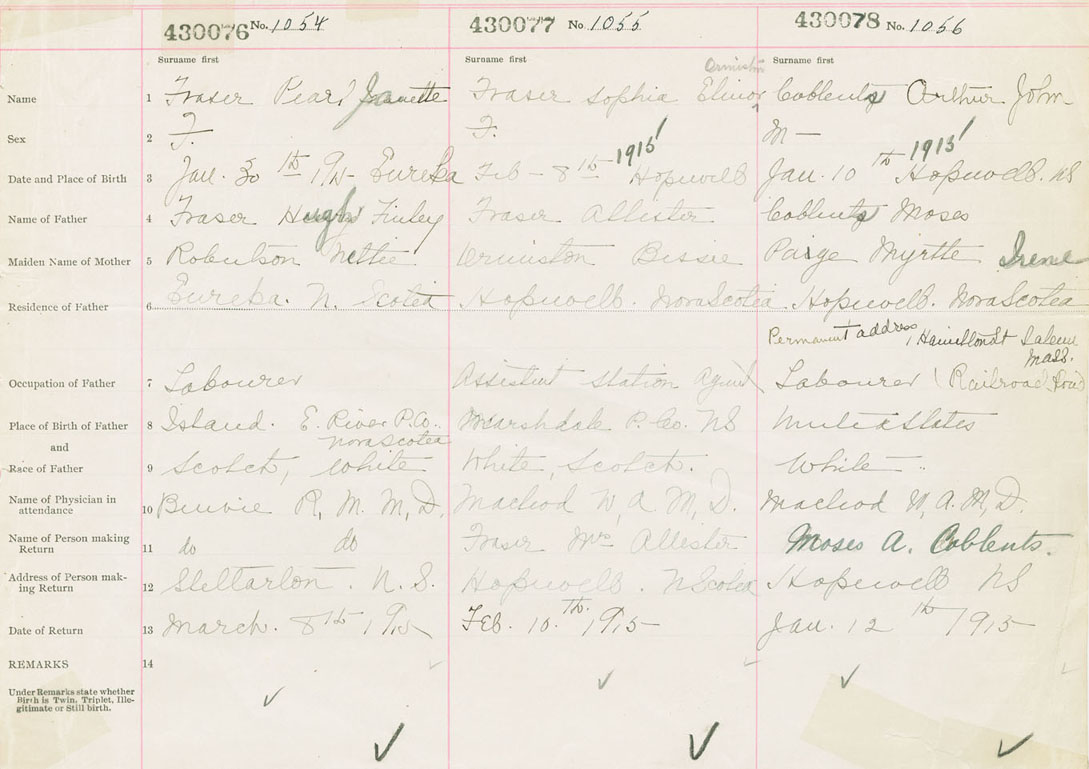 430076 No. 1054 430077 No 1055 430078 No 1056
Surname first Surname first Surname first
Ormiston
Name 1 Fraser Pearl Jeanette Fraser Sophia Elinor Coblentz Arthur John
Sex 2 F. F. M
Date and Place of Birth 3 Jan. 30th 1915 Eureka Feb - 8th 1915 Hopwell Jan. 10th 1915 Hopwell. NS
Name of Father 4 Fraser Hugh Finley Fraser Allister Coblentz Moses
Maiden Name of Mother 5 Robertson Nettie Ormiston Bessie Paige Myrtle Irene
Residence of Father 6 Eureka. N. Scotia Hopwell. Nova Scotia Hopwell. Nova Scotia
Permanent address 1 Hamilton St Salem
Mass.
Occupation of Father 7 Labourer Assistant Station Agent Labourer (Railroad Road
Place of Birth of Father 8 Island. E. River P. Co. Marshdale P. Co. NS United States
and Nova Scotia
Race of Father 9 Scotch, White White, Scotch. White
Name of Physician in
attendance 10 R, M. M, D. Macleod W, A. M, D. Macleod W, A. M, D.
Name of Person making
Return 11 do do Fraser Mrs Allister Moses A. Coblents.
Address of Person mak-
ing Return 12 Stellarton. N. S. Hopwell. N Scotia Hopwell NS
Date of Return 13 March. 8th 1915 Feb. 10th. 1915 Jan. 12th 1915
REMARKS 14
Under Remarks state whether
Birth is Twin, Triplet, Ille-
gitimate or Still birth.